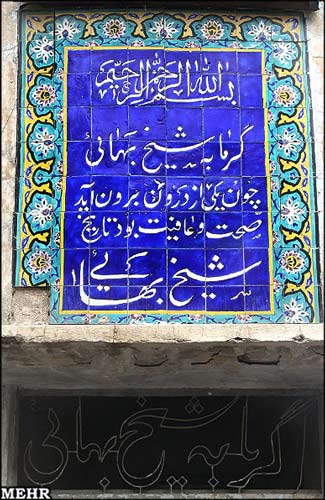 بسم الله الرحمن الرحیم
گرمابه شیخ بهائی
چون یکی از درون برون آید
صحت و عافیت بود تاریخ
شیخ بهایی
گرمابه شیخ بهائی
MEHR